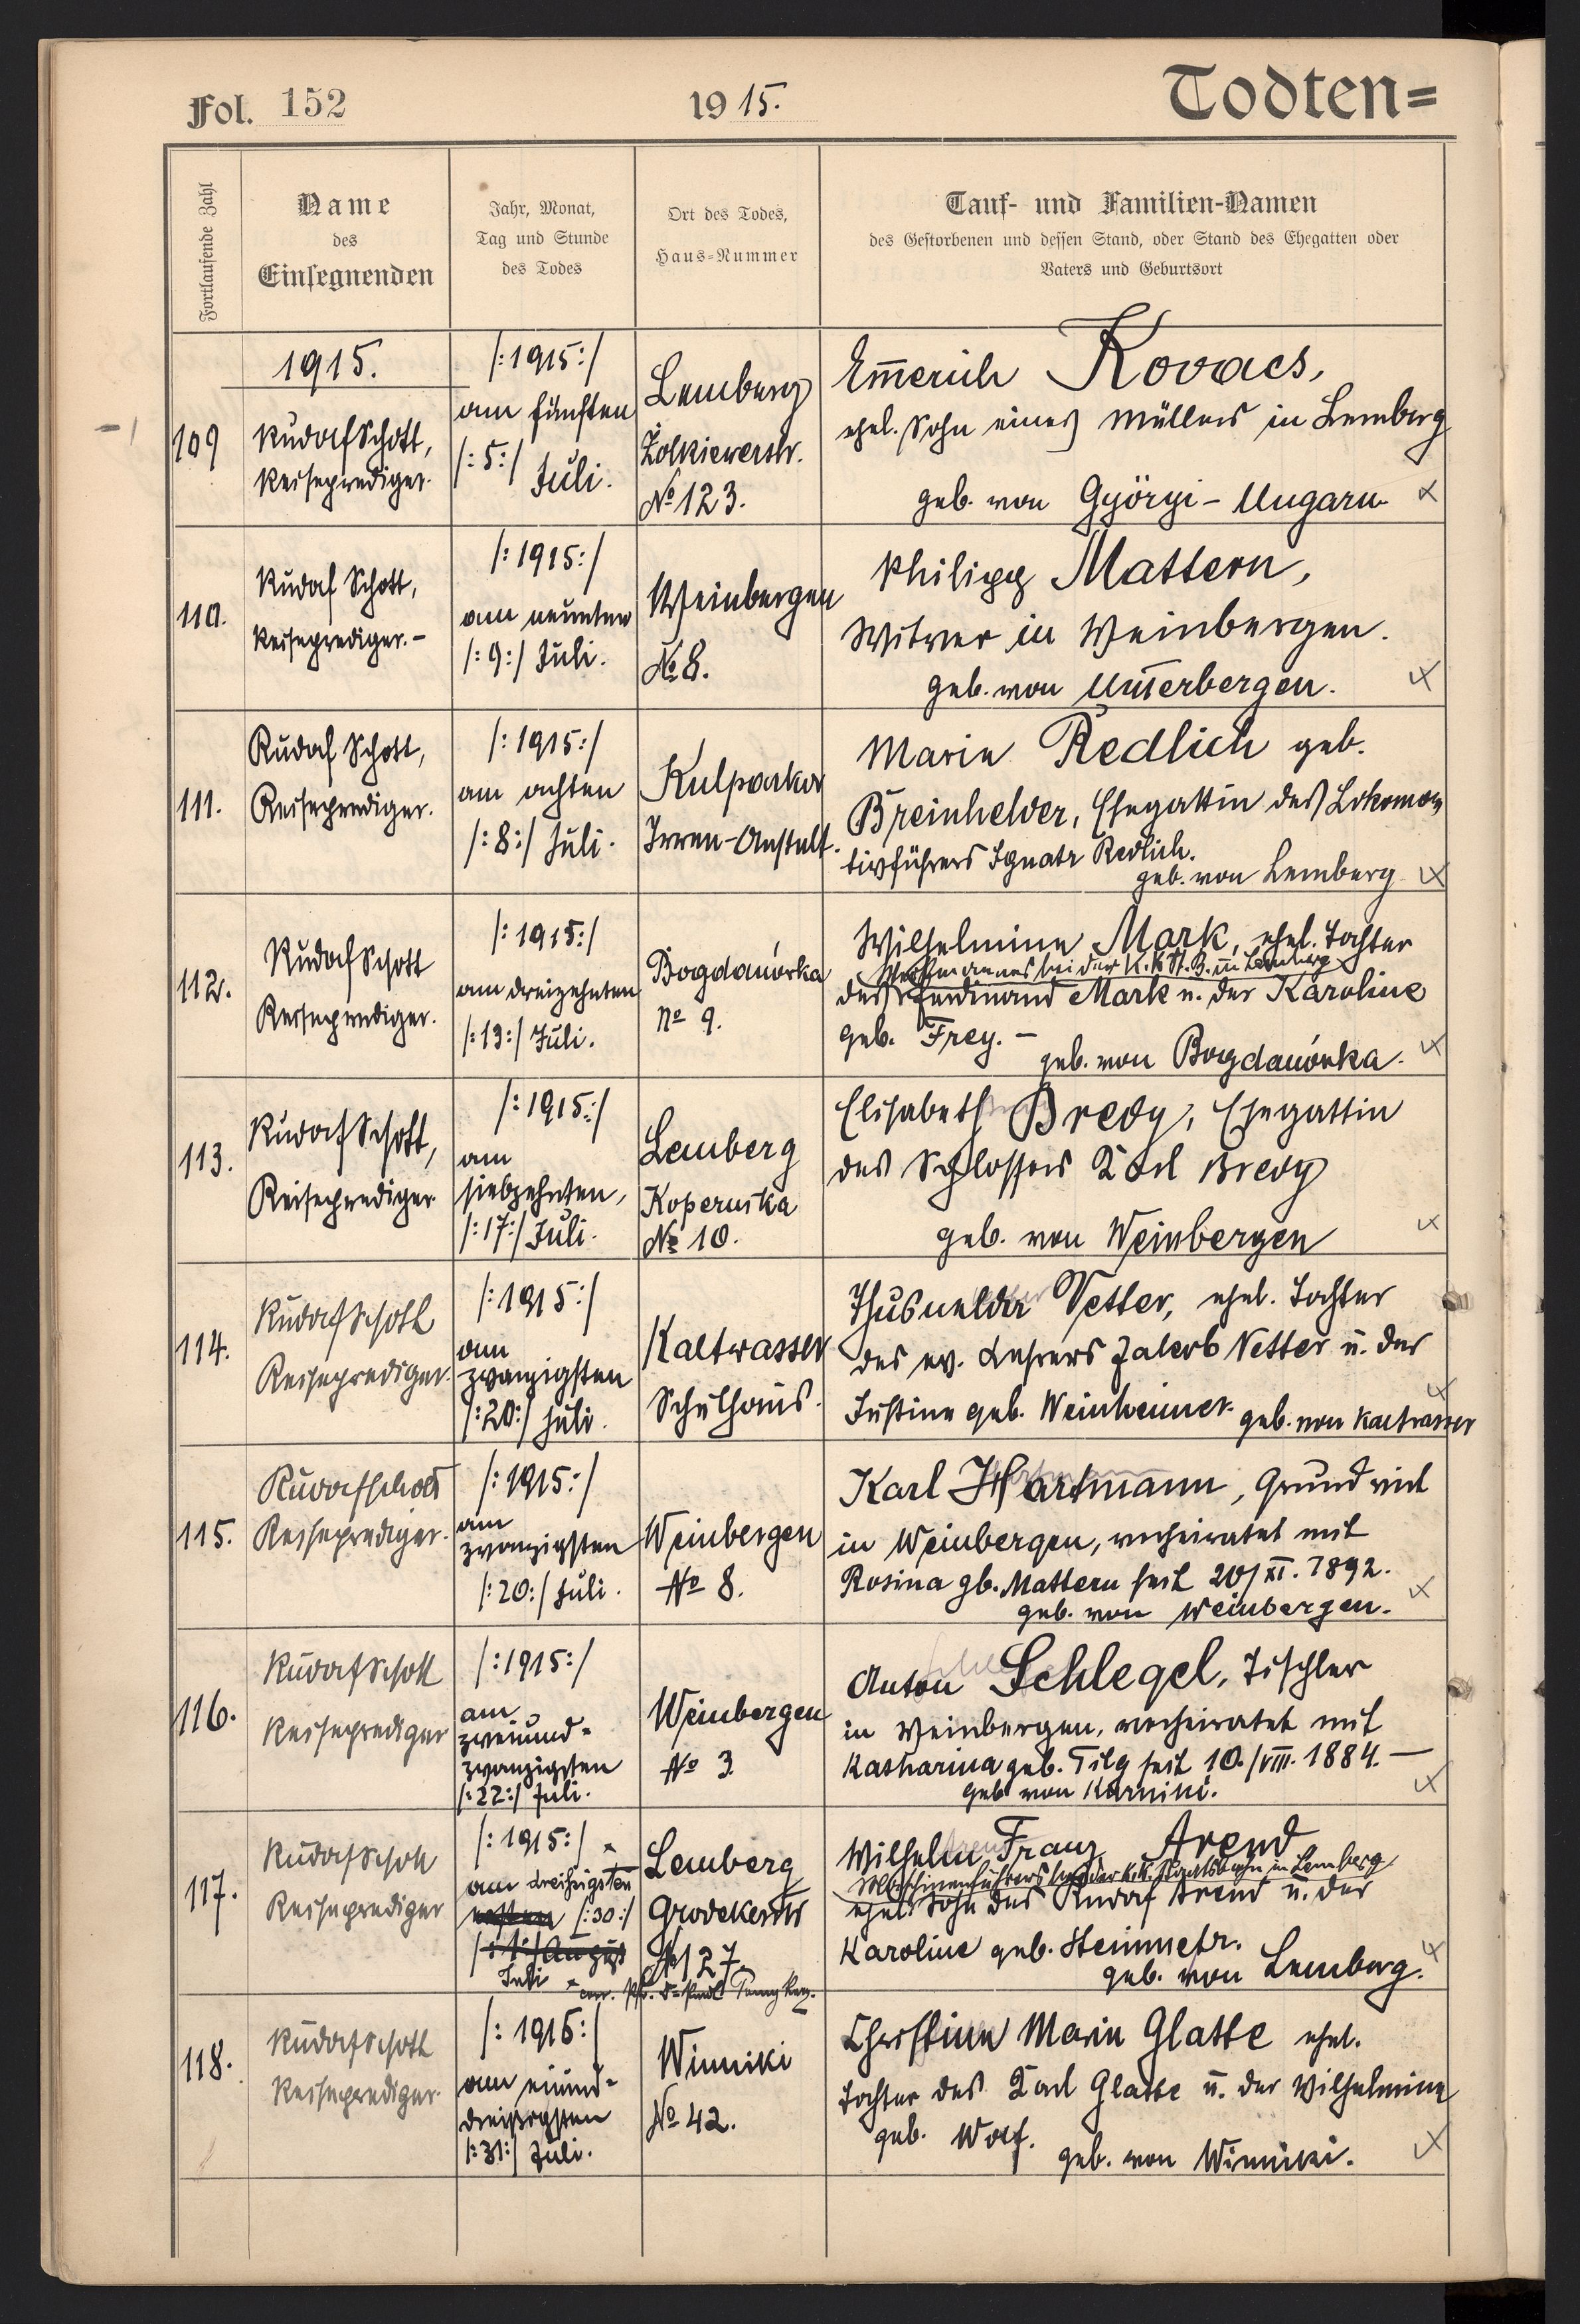 Fol. 152
1915.
Todten=
Fortlaufende Zahl
Name
des
Einsegnenden
Jahr, Monat,
Tag und Stunde
des Todes
Ort des Todes,
Haus-Nummer
Tauf- und Familien-Namen
des Gestorbenen und dessen Stand, oder Stand des Ehegatten oder
Vaters und Geburtsort
1915.
109
Rudolf Schott,
Reiseprediger.
/:1915:/
am fünften
/:5:/ Juli.
Lemberg
Żolkiewerstr.
No 123.
Em̄erich Kovacs,
ehel. Sohn eines Müllers in Lemberg
geb. von Györgi - Ungarn
110.
Rudolf Schott,
Reiseprediger.-
/:1915:/
am neunten
/:9:/ Juli.
Weinbergen
No 8.
Philipp Mattern,
Witwer in Weinbergen.
geb. von Unterbergen.
111.
Rudolf Schott,
Reiseprediger.
/:1915:/
am achten
/:8:/ Juli.
Kulparkow
Irren-Anstalt.
Marie Redlich geb.
Breinhelder, Ehegattin des Lokomo-
tivführers Ignatz Redlich.
geb. von Lemberg
112.
Rudolf Schott
Reiseprediger.
/:1915:/
am dreizehnten
/:13:/ Juli.
Bogdanówka
No 9.
Wilhelmine Mark, ehel. Tochter
bei der K.K. St. B. in Lemberg
des Ferdinand Mark u. der Karoline
geb. Frey. -
geb. von Bogdanówka.
113.
Rudolf Schott,
Reiseprediger
/:1915:/
am
siebzehnten,
/:17:/ Juli.
Lemberg
Kopernika
No 10.
Elisabeth Bredy, Ehegattin
des Schlossers Karl Bredy
geb. von Weinbergen
114.
Rudolf Schott
Reiseprediger.
/:1915:/
am
zwanzigsten
/:20:/ Juli.
Kaltwasser
Schulhaus.
Thusnelda Vetter, ehel. Tochter
des ev. Lehrers Jakob Vetter u. der
Justine geb. Weinheimer. geb. von Kaltwasser
115.
Rudolf Schott
Reiseprediger.
/:1915:/
am
zwanzigsten
/:20:/ Juli.
Weinbergen
No 8.
Karl Hartmann, Grundwirt
in Weinbergen, verheiratet mit
Rosina gb. Mattern seit 20/XI. 1892.
geb. von Weinbergen.
116.
Rudolf Schott
Reiseprediger
/:1915:/
am
zweiund-
zwanzigsten
/:22:/ Juli.
Weinbergen
No 3
Anton Schlegel, Tischler
in Weinbergen, verheiratet mit
Katharina geb. Tilg seit 10./VIII. 1884. -
geb von Kurnini.
117.
Rudolf Schott
Reiseprediger
/:1915:/
am dreißigsten
/:30:/
/:1:/ August
Juli
Lemberg
Grodekerstr
No 127.
corr. Pfr.
Wilhelm Franz Arend
Maschinenführers bei der k.k. Staatsbahn in Lemberg
ehel. Sohn des Rudolf Arend u. der
Karoline geb. Steinmetz.
geb. von Lemberg.
118.
Rudolf Schott
Reiseprediger.
/:1915:/
am einund-
dreißigsten
/:31:/ Juli.
Winniki
No 42.
Christine Marie Glatte ehel.
Tochter des Karl Glatte u. der Wilhelmine
geb. Wolf.
geb. von Winniki.